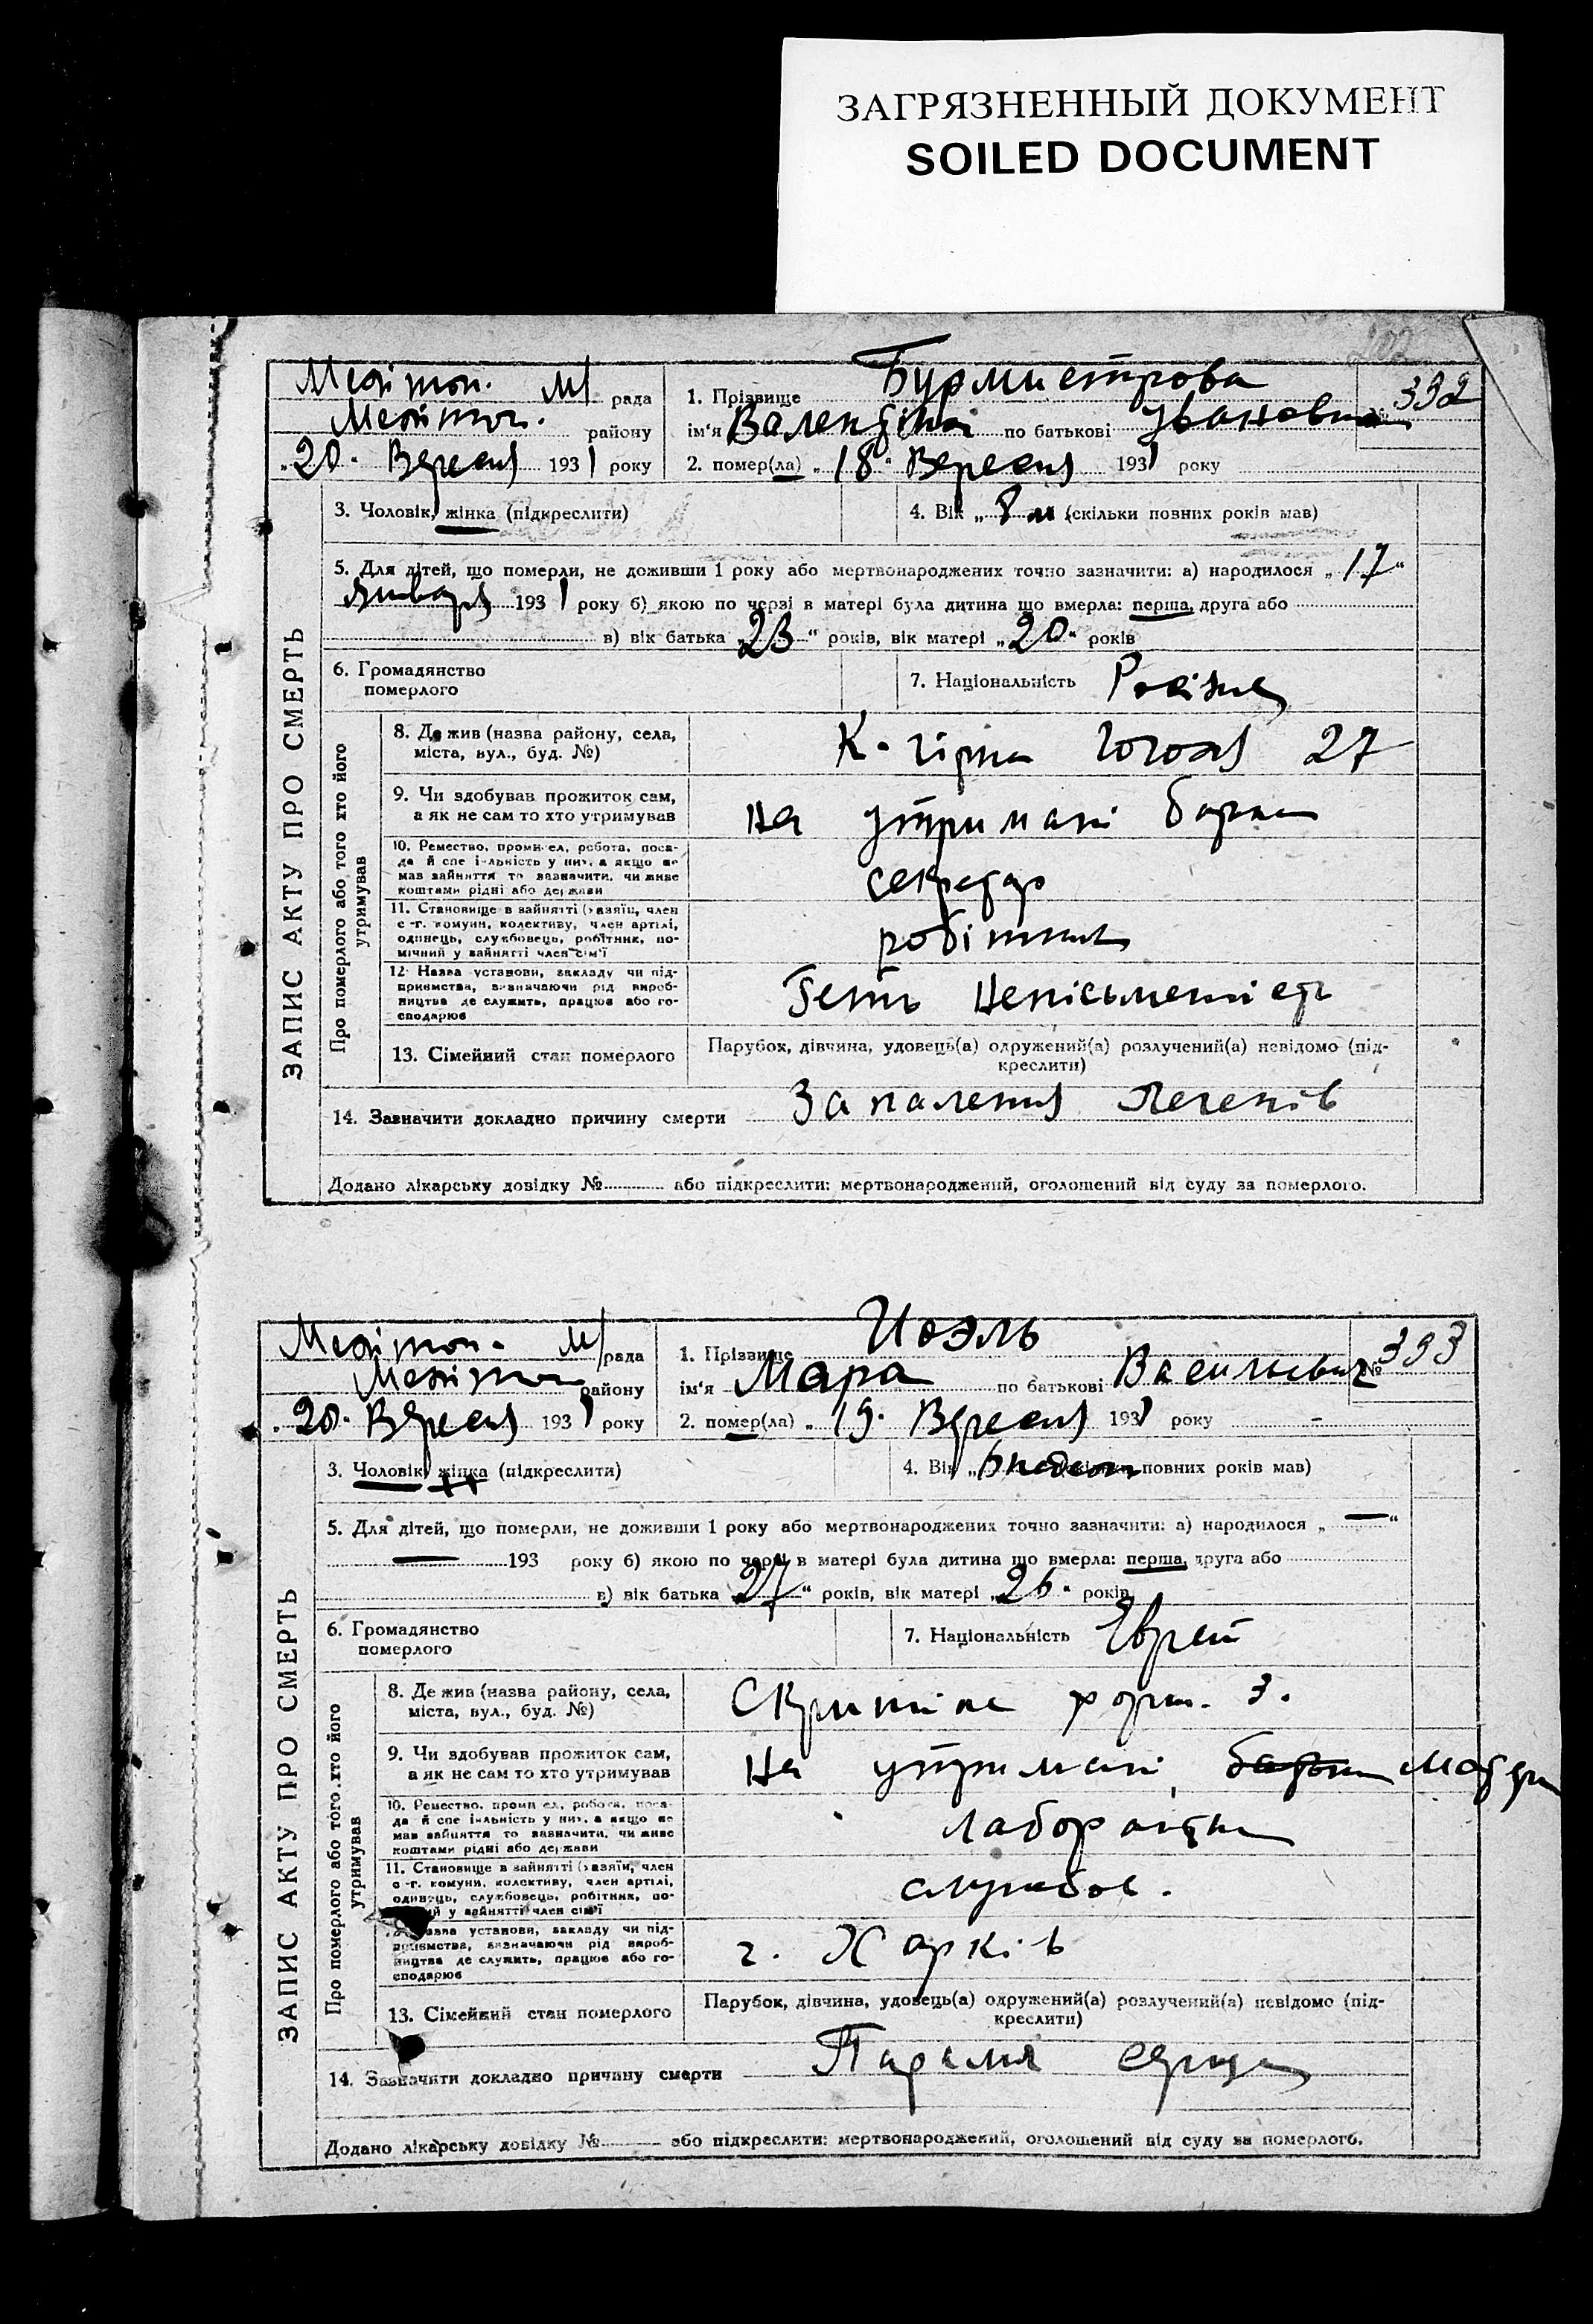 ЗАГРЯЗНЕННЫЙ ДОКУМЕНТ
SOILED DOCUMENT
ЗАПИС АКТУ ПРО СМЕРТЬ
Меліттоп. М/ рада
Меліттоп. району
„20" Вересня 1931 року
1. Прізвище Бурмистрова
№ 392
ім'я Валентіна по батькові Івановна
2. помер(ла) „18" Вересня 1931 року
3. Чоловік, жінка (підкреслити)
4. Вік „8 м (скільки повних років мав)
5. Для дітей, що померли, не доживши 1 року або мертвонароджених точно зазначити: а) народилося „17"
Января 1931 року б) якою по черзі в матері була дитина що вмерла: перша, друга або
в) вік батька „23" років, вік матері „20" років
6. Громадянство
померлого
7. Національність Росіянка
Про померлого або того хто його
утримував
8. Де жив (назва району, села,
міста, вул., буд. №)
К. 27
9. Чи здобував прожиток сам,
а як не сам то хто утримував
На утримані батька
10. Ремество, промисел, робота, поса-
да й спеціяльність у них, а якщо не
мав зайняття то зазначити, чи живе
коштами рідні або держави
секретар
11. Становище в зайнятті (хазяїн, член
с.-г. комуни, колективу, член артілі,
одинець, службовець, робітник, по-
мічний у зайнятті член сім'ї
робітник
12. Назва установи, закладу чи під-
приємства, визначаючи рід вироб-
ництва де служить, працює або го-
сподарює
13. Сімейний стан померлого
Парубок, дівчина, удовець(а) одружений(а) розлучений(а) невідомо (під-
креслити)
14. Зазначити докладно причину смерти Запалення Легенів
Додано лікарську довідку № або підкреслити: мертвонароджений, оголошений від суду за померлого.
ЗАПИС АКТУ ПРО СМЕРТЬ
Меліттоп. М/ рада
Меліттоп району
„20" Вересня 1931 року
1. Прізвище Иоэль
№ 393
ім'я Мара по батькові Васильевич
2. помер(ла) „19" Вересня 1931 року
3. Чоловік, жінка (підкреслити)
4. Вік „ повних років мав)
5. Для дітей, що померли, не доживши 1 року або мертвонароджених точно зазначити: а) народилося „—"
— 193 року б) якою по черзі в матері була дитина що вмерла: перша, друга або
в) вік батька „27" років, вік матері „26" років
6. Громадянство
померлого
7. Національність Єврей
Про померлого або того хто його
утримував
8. Де жив (назва району, села,
міста, вул., буд. №)
3.
9. Чи здобував прожиток сам,
а як не сам то хто утримував
На утримані батька матери
10. Ремество, промисел, робота, поса-
да й спеціяльність у них, а якщо не
мав зайняття то зазначити, чи живе
коштами рідні або держави
лаборантка
11. Становище в зайнятті (хазяїн, член
с.-г. комуни, колективу, член артілі,
одинець, службовець, робітник, по-
й у зайнятті член сім'ї
службов.
Назва установи, закладу чи під-
приємства, визначаючи рід вироб-
ництва де служить, працює або го-
сподарює
г. Харків
13. Сімейний стан померлого
Парубок, дівчина, удовець(а) одружений(а) розлучений(а) невідомо (під-
креслити)
14. Зазначити докладно причину смерти серця
Додано лікарську довідку № або підкреслити: мертвонароджений, оголошений від суду за померлого.